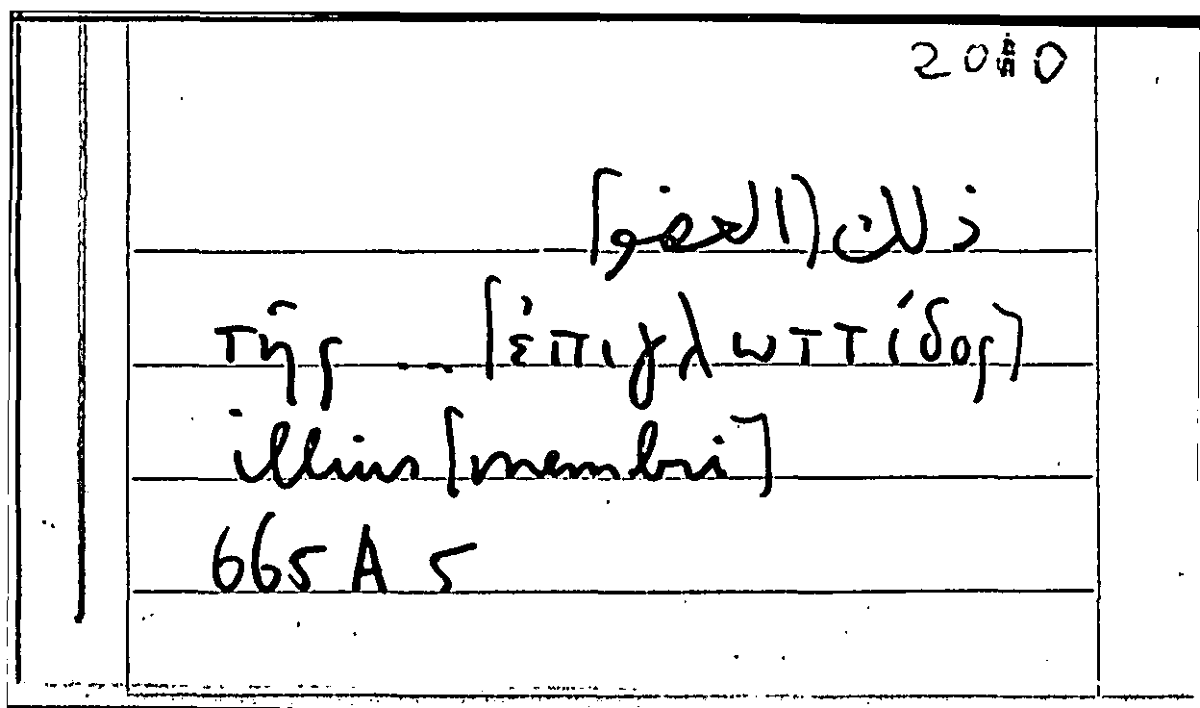 ذلك [العضو]
τῆς ... [ἐπιγλωττίδος]
illius [membri]
665 A 5